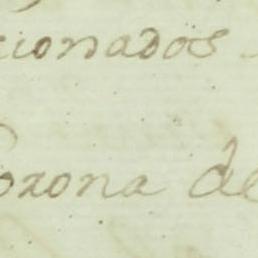 cionados
orona de